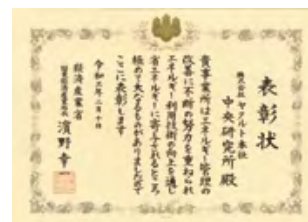 表彰状
株式会社 ヤクルト本社
中央研究所 殿
貴事業所はエネルギー管理の
改善に不断の努力を重ねられ
エネルギー利用技術の向上を通し
省エネルギーに寄与するところ
極めて大なるものがありましたので
ここに表彰します
令和五年二月十日
経済産業省
関東経済産業局長
濱野幸一